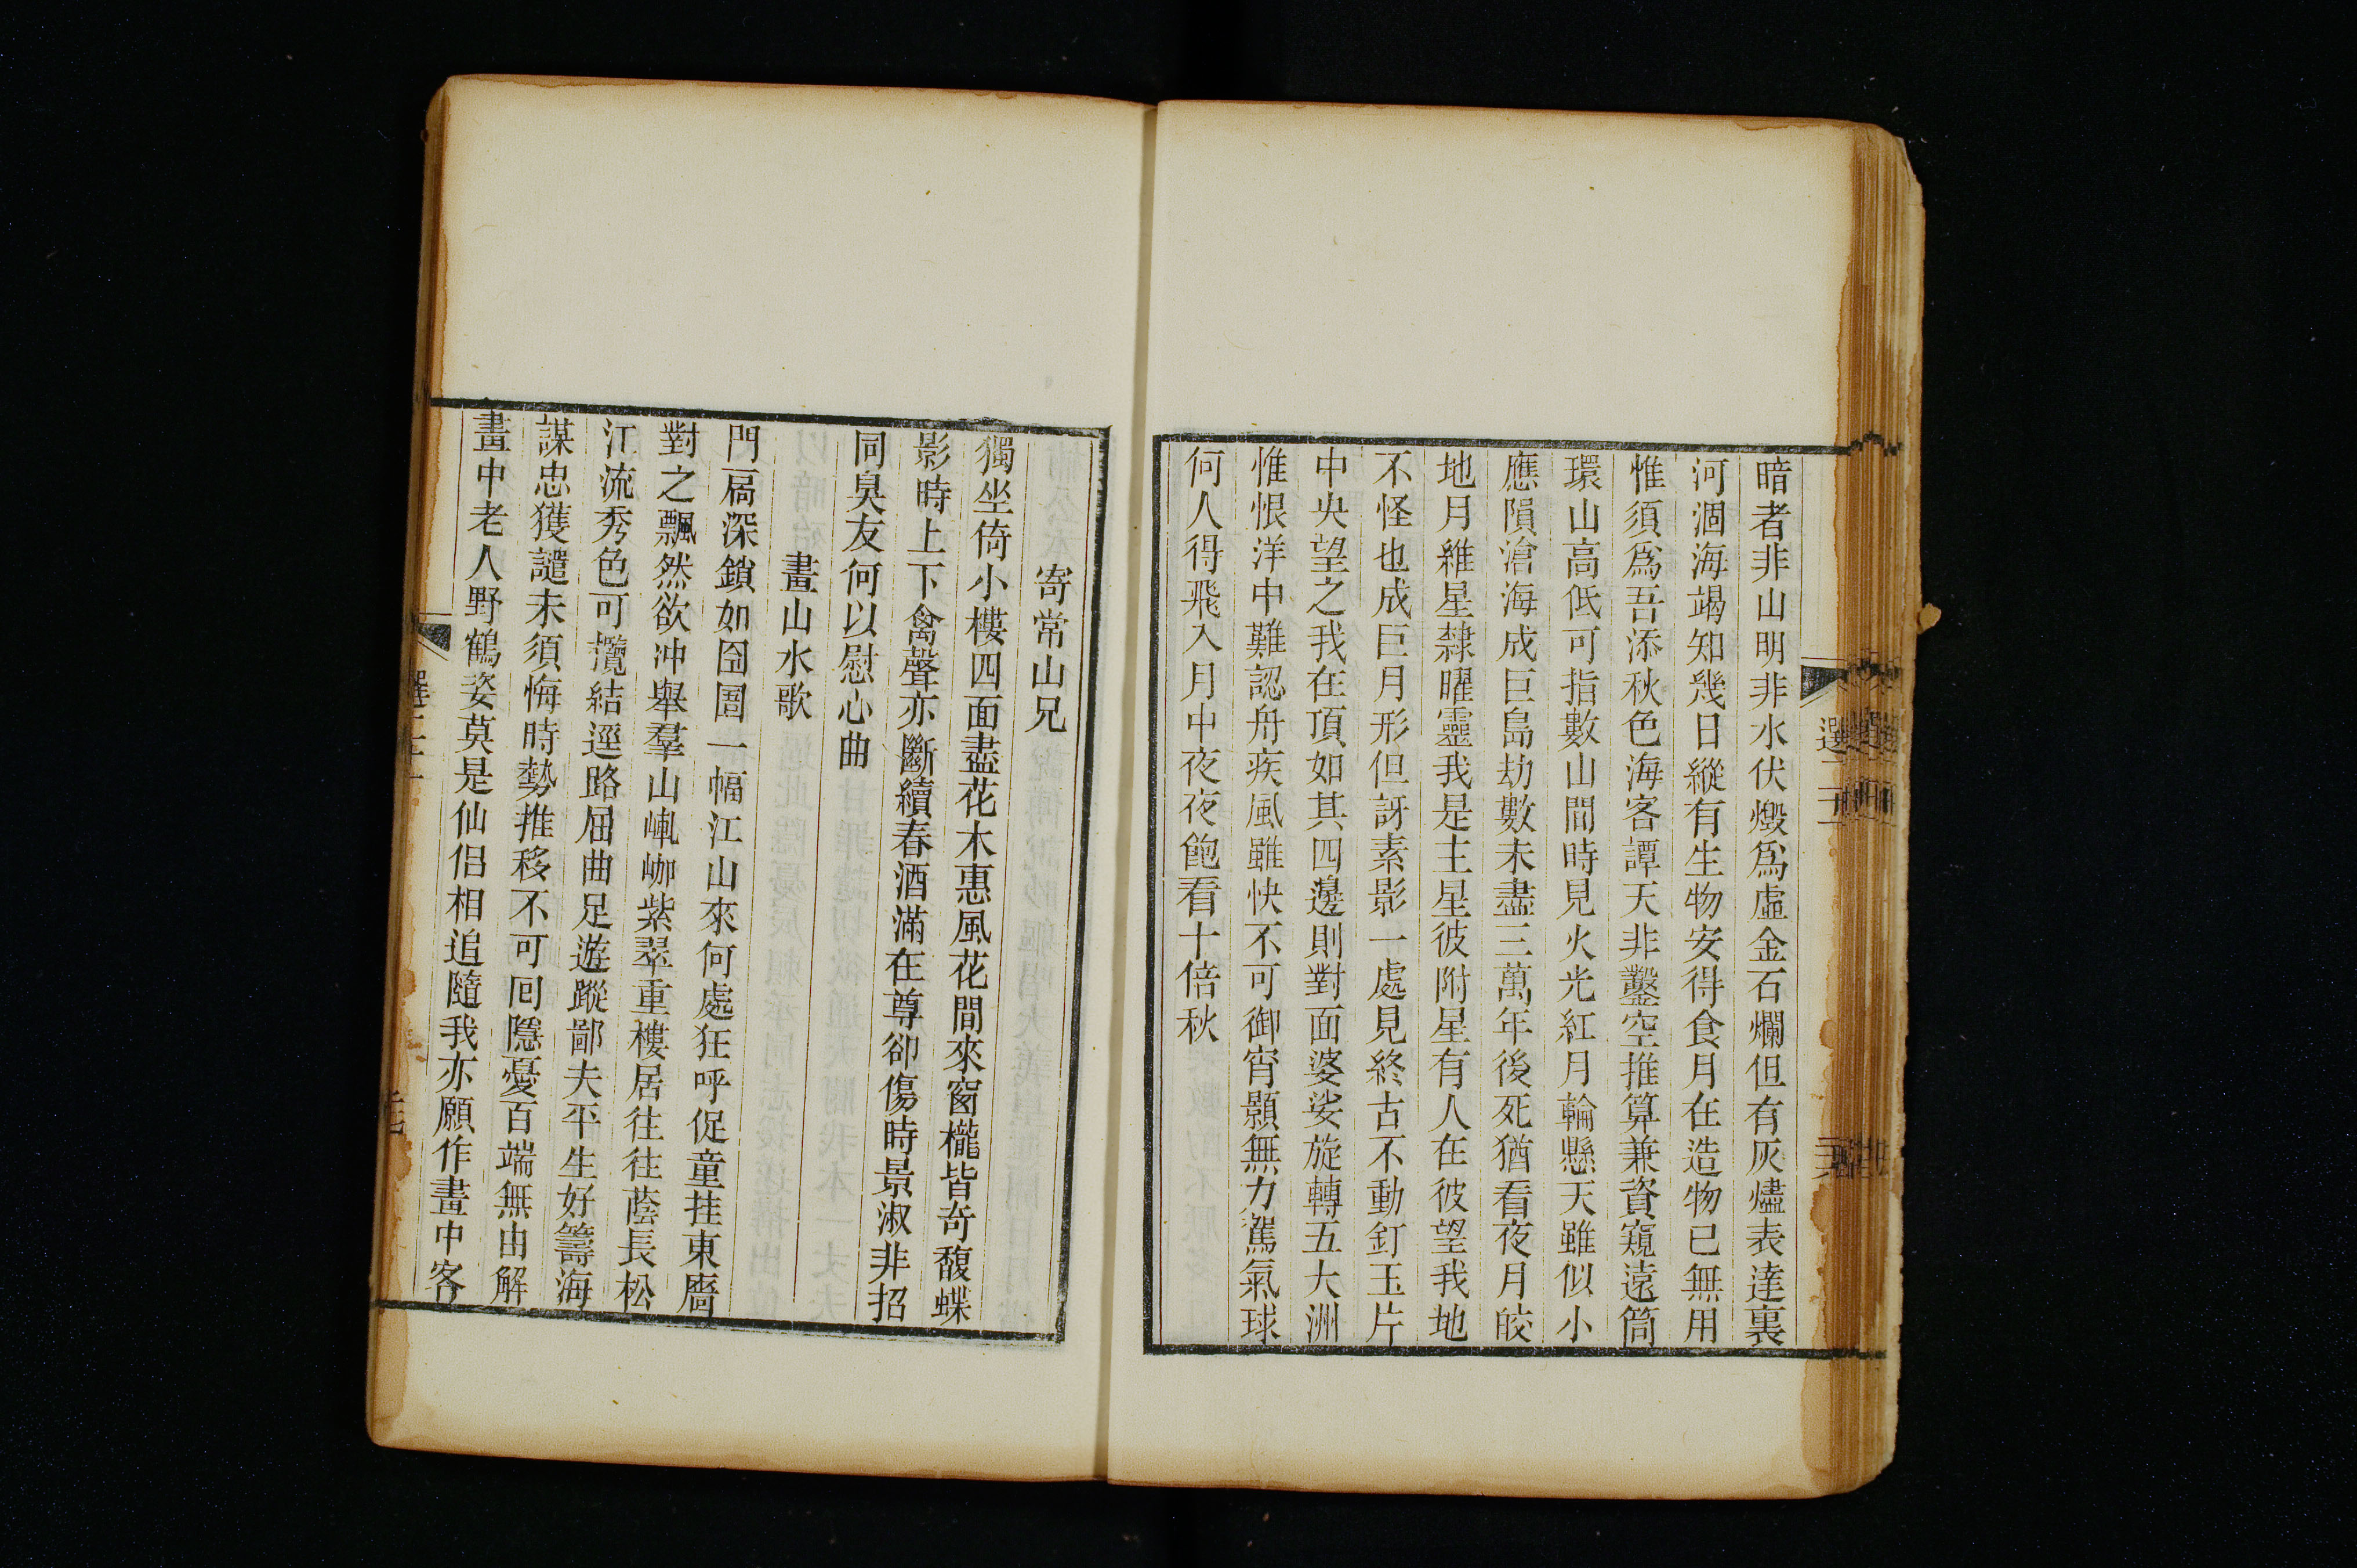 暗者非山明非水伏燬爲虛金石爛但有灰燼表達裏
河涸海竭知幾日縱有生物安得食月在造物已無用
惟須爲吾添秋色海客譚天非鑿空推算兼資窺遠筒
環山高低可指數山間時見火光紅月輪懸天雖似小
應隕滄海成巨島劫數未盡三萬年後死猶看夜月皎
地月維星隸曜靈我是主星彼附星有人在彼望我地
不怪也成巨月形但訝素影一處見終古不動釘玉片
中央望之我在頂如其四邊則對面婆娑旋轉五大洲
惟恨洋中難認舟疾風雖快不可御宵顥無力駕氣球
何人得飛入月中夜夜飽看十倍秋
寄常山兄
獨坐倚小樓四面盡花木惠風花間來窗櫳皆奇馥蝶
影時上下禽聲亦斷續春酒滿在尊卻傷時景淑非招
同臭友何以慰心曲
畫山水歌
門扃深鎖如囹圄一幅江山來何處狂呼促童挂東牆
對之飄然欲冲舉羣山崊峫紫翠重樓居往往蔭長松
江流秀色可攬結逕路屈曲足遊蹤鄙夫平生好籌海
謀忠獲譴未須悔時勢推移不可囘隱憂百端無由解
畫中老人野鶴姿莫是仙侶相追隨我亦願作畫中客